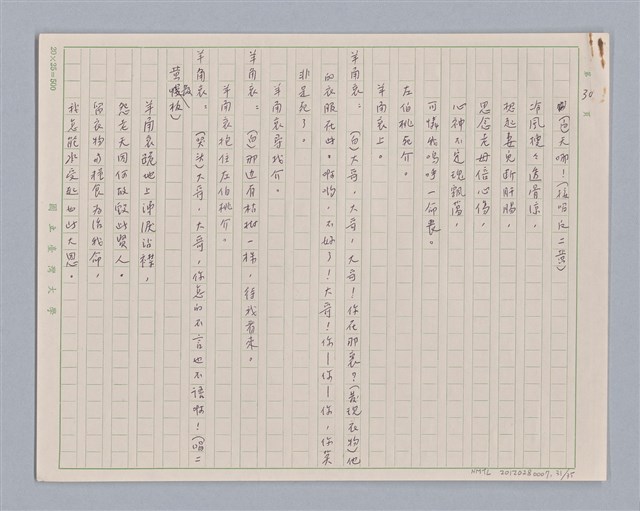 第 30 頁
(白)天哪!(接唱反二黃)
冷風襖々透骨凉,
想起妻兒斷肝腸,
思念老母信心傷,
心神不定魂飄蕩,
可憐我嗚呼一命喪。
左伯桃死介。
羊角哀上。
羊角哀:(白)大哥,大哥!你在那裏?(發現衣物)他
的衣服在此。啊喲,不好了!大哥!你—你—你,你莫
非是死了。
羊角哀尋找介。
羊角哀:(白)那边有枯樹一棵,待我看來。
羊角哀抱住左伯桃介。
羊角哀:(哭头)大哥,大哥,你怎的不言也不語啊!(唱二
黃散板)
羊角哀跪地上淚沾襟,
怨老天因何故毀此賢人。
留衣物與糧食為活我命,
我怎能承受起如此大恩。
20×25=500
國立臺灣大學
NMTL 20120280007, 31/35